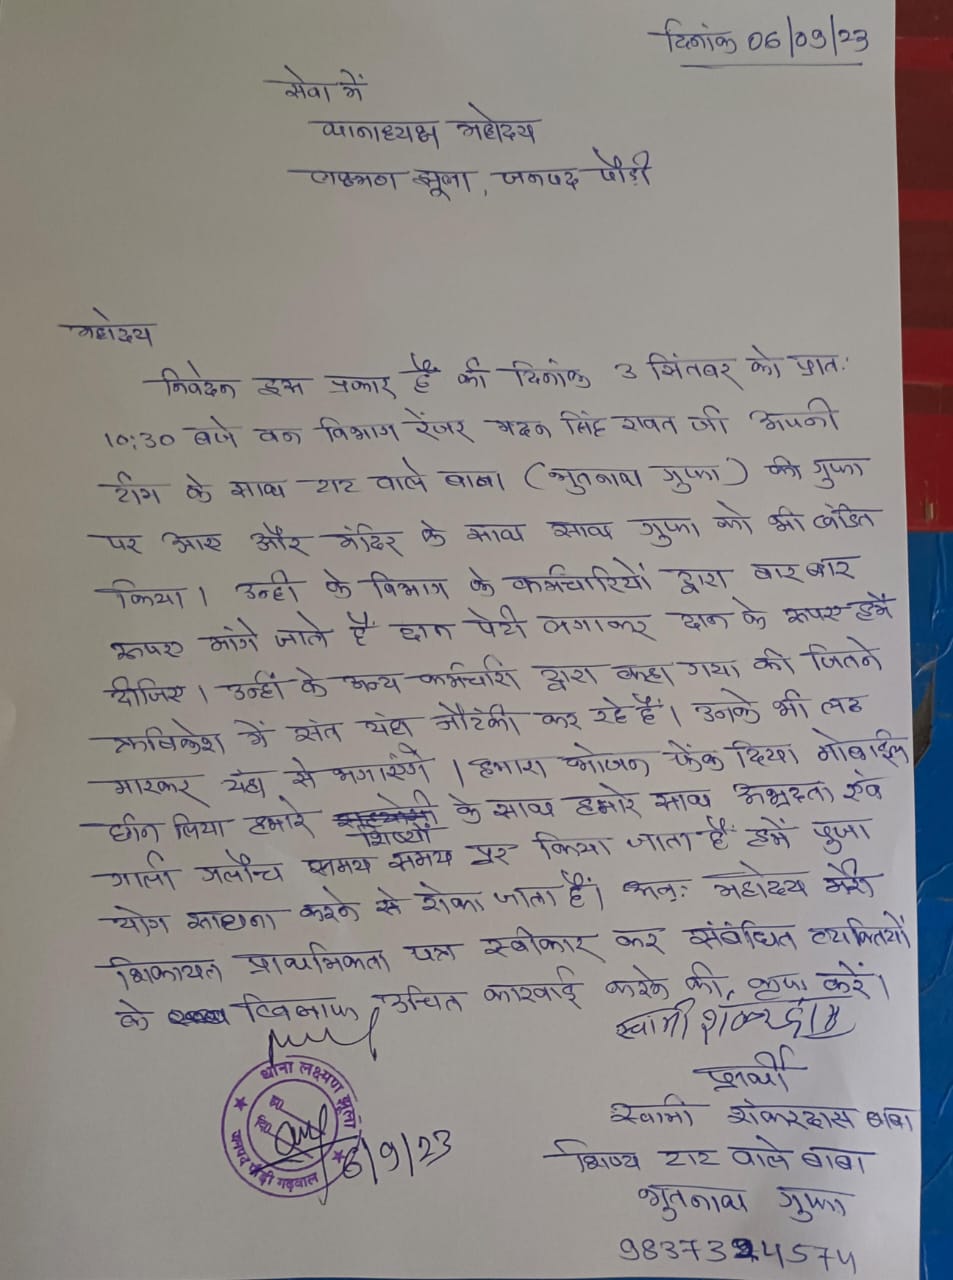 दिनांक 06/09/23
सेवा में
थानाध्यक्ष महोदय
लक्ष्मण झूला, जनपद पौड़ी
महोदय
निवेदन इस प्रकार है की दिनांक 3 सितंबर को प्रातः
10:30 बजे वन विभाग रेंजर मदन सिंह रावत जी अपनी
टीम के साथ टाट वाले बाबा (भुतनाथ गुफा) की गुफा
पर आए और मंदिर के साथ साथ गुफा को भी खंडित
किया। उन्ही के विभाग के कर्मचारियों द्वारा बार बार
रूपए मांगे जाते हैं दान पेटी लगाकर दान के रूपए हमें
दीजिए। उन्हीं के अन्य कर्मचारी द्वारा कहा गया की जितने
ऋषिकेश में संत यहां नौटंकी कर रहे हैं। उनके भी लठ
मारकर यहां से भगाएंगे। हमारा भोजन फेंक दिया मोबाईल
छीन लिया हमारे शिष्यों के साथ हमारे साथ अभद्रता एवं
गाली गलौच समय समय पर किया जाता है हमें पुजा
योग साधना करने से रोका जाता है। अतः महोदय मेरी
शिकायत प्राथमिकता पत्र स्वीकार कर संबंधित व्यक्तियों
के खिलाफ उचित कारवाई करने की कृपा करें।
स्वामी शंकरदास
प्रार्थी
स्वामी शंकरदास बाबा
शिष्य टाट वाले बाबा
भुतनाथ गुफा
थाना लक्ष्मण झूला
जनपद पौड़ी गढ़वाल
6/9/23